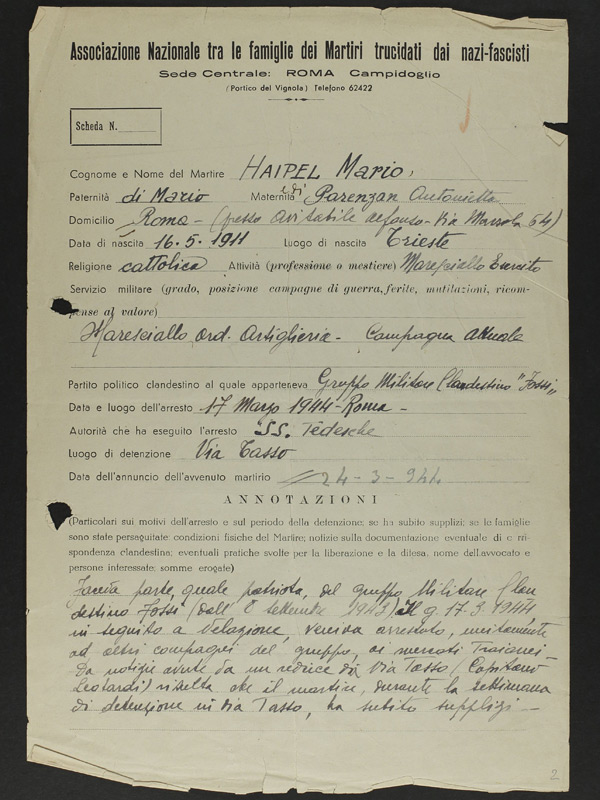 Associazione Nazionale tra le famiglie dei Martiri trucidati dai nazi-fascisti
Sede Centrale: ROMA Campidoglio
(Portico del Vignola) Telefono 62422
Scheda N.
Cognome e Nome del Martire HAIPEL Mario,
Paternità di Mario Maternità di Parenzan Antonietta
Domicilio Roma - (presso Avitabile Alfonso - Via Marsala 64)
Data di nascita 16.5.1911 Luogo di nascita Trieste
Religione cattolica Attività (professione o mestiere) Maresciallo Esercito
Servizio militare (grado, posizione campagne di guerra, ferite, mutilazioni, ricom-
pense al valore)
Maresciallo ord. Artiglieria - Campagna Attuale
Partito politico clandestino al quale apparteneva Gruppo Militare Clandestino "Fossi"
Data e luogo dell'arresto 17 Marzo 1944 - Roma -
Autorità che ha eseguito l'arresto SS. Tedesche
Luogo di detenzione Via Tasso
Data dell'annuncio dell'avvenuto martirio 24-3-944
ANNOTAZIONI
(Particolari sui motivi dell'arresto e sul periodo della detenzione; se ha subito supplizi; se le famiglie
sono state perseguitate; condizioni fisiche del Martire; notizie sulla documentazione eventuale di c rri-
spondenza clandestina; eventuali pratiche svolte per la liberazione e la difesa, nome dell'avvocato e
persone interessate; somme erogate)
Faceva parte, quale patriota, del gruppo Militare Clan
destino Fossi (dall' 8 settembre 1943) Il g. 17-3-1944
in seguito a delazione, veniva arrestato, unitamente
ad altri compagni del gruppo, ai mercati Traianei
Da notizie avute da un reduce di Via Tasso (Capitano
Leotardi) risulta che il martire, durante la settimana
di detenzione in Via Tasso, ha subito supplizi -
2